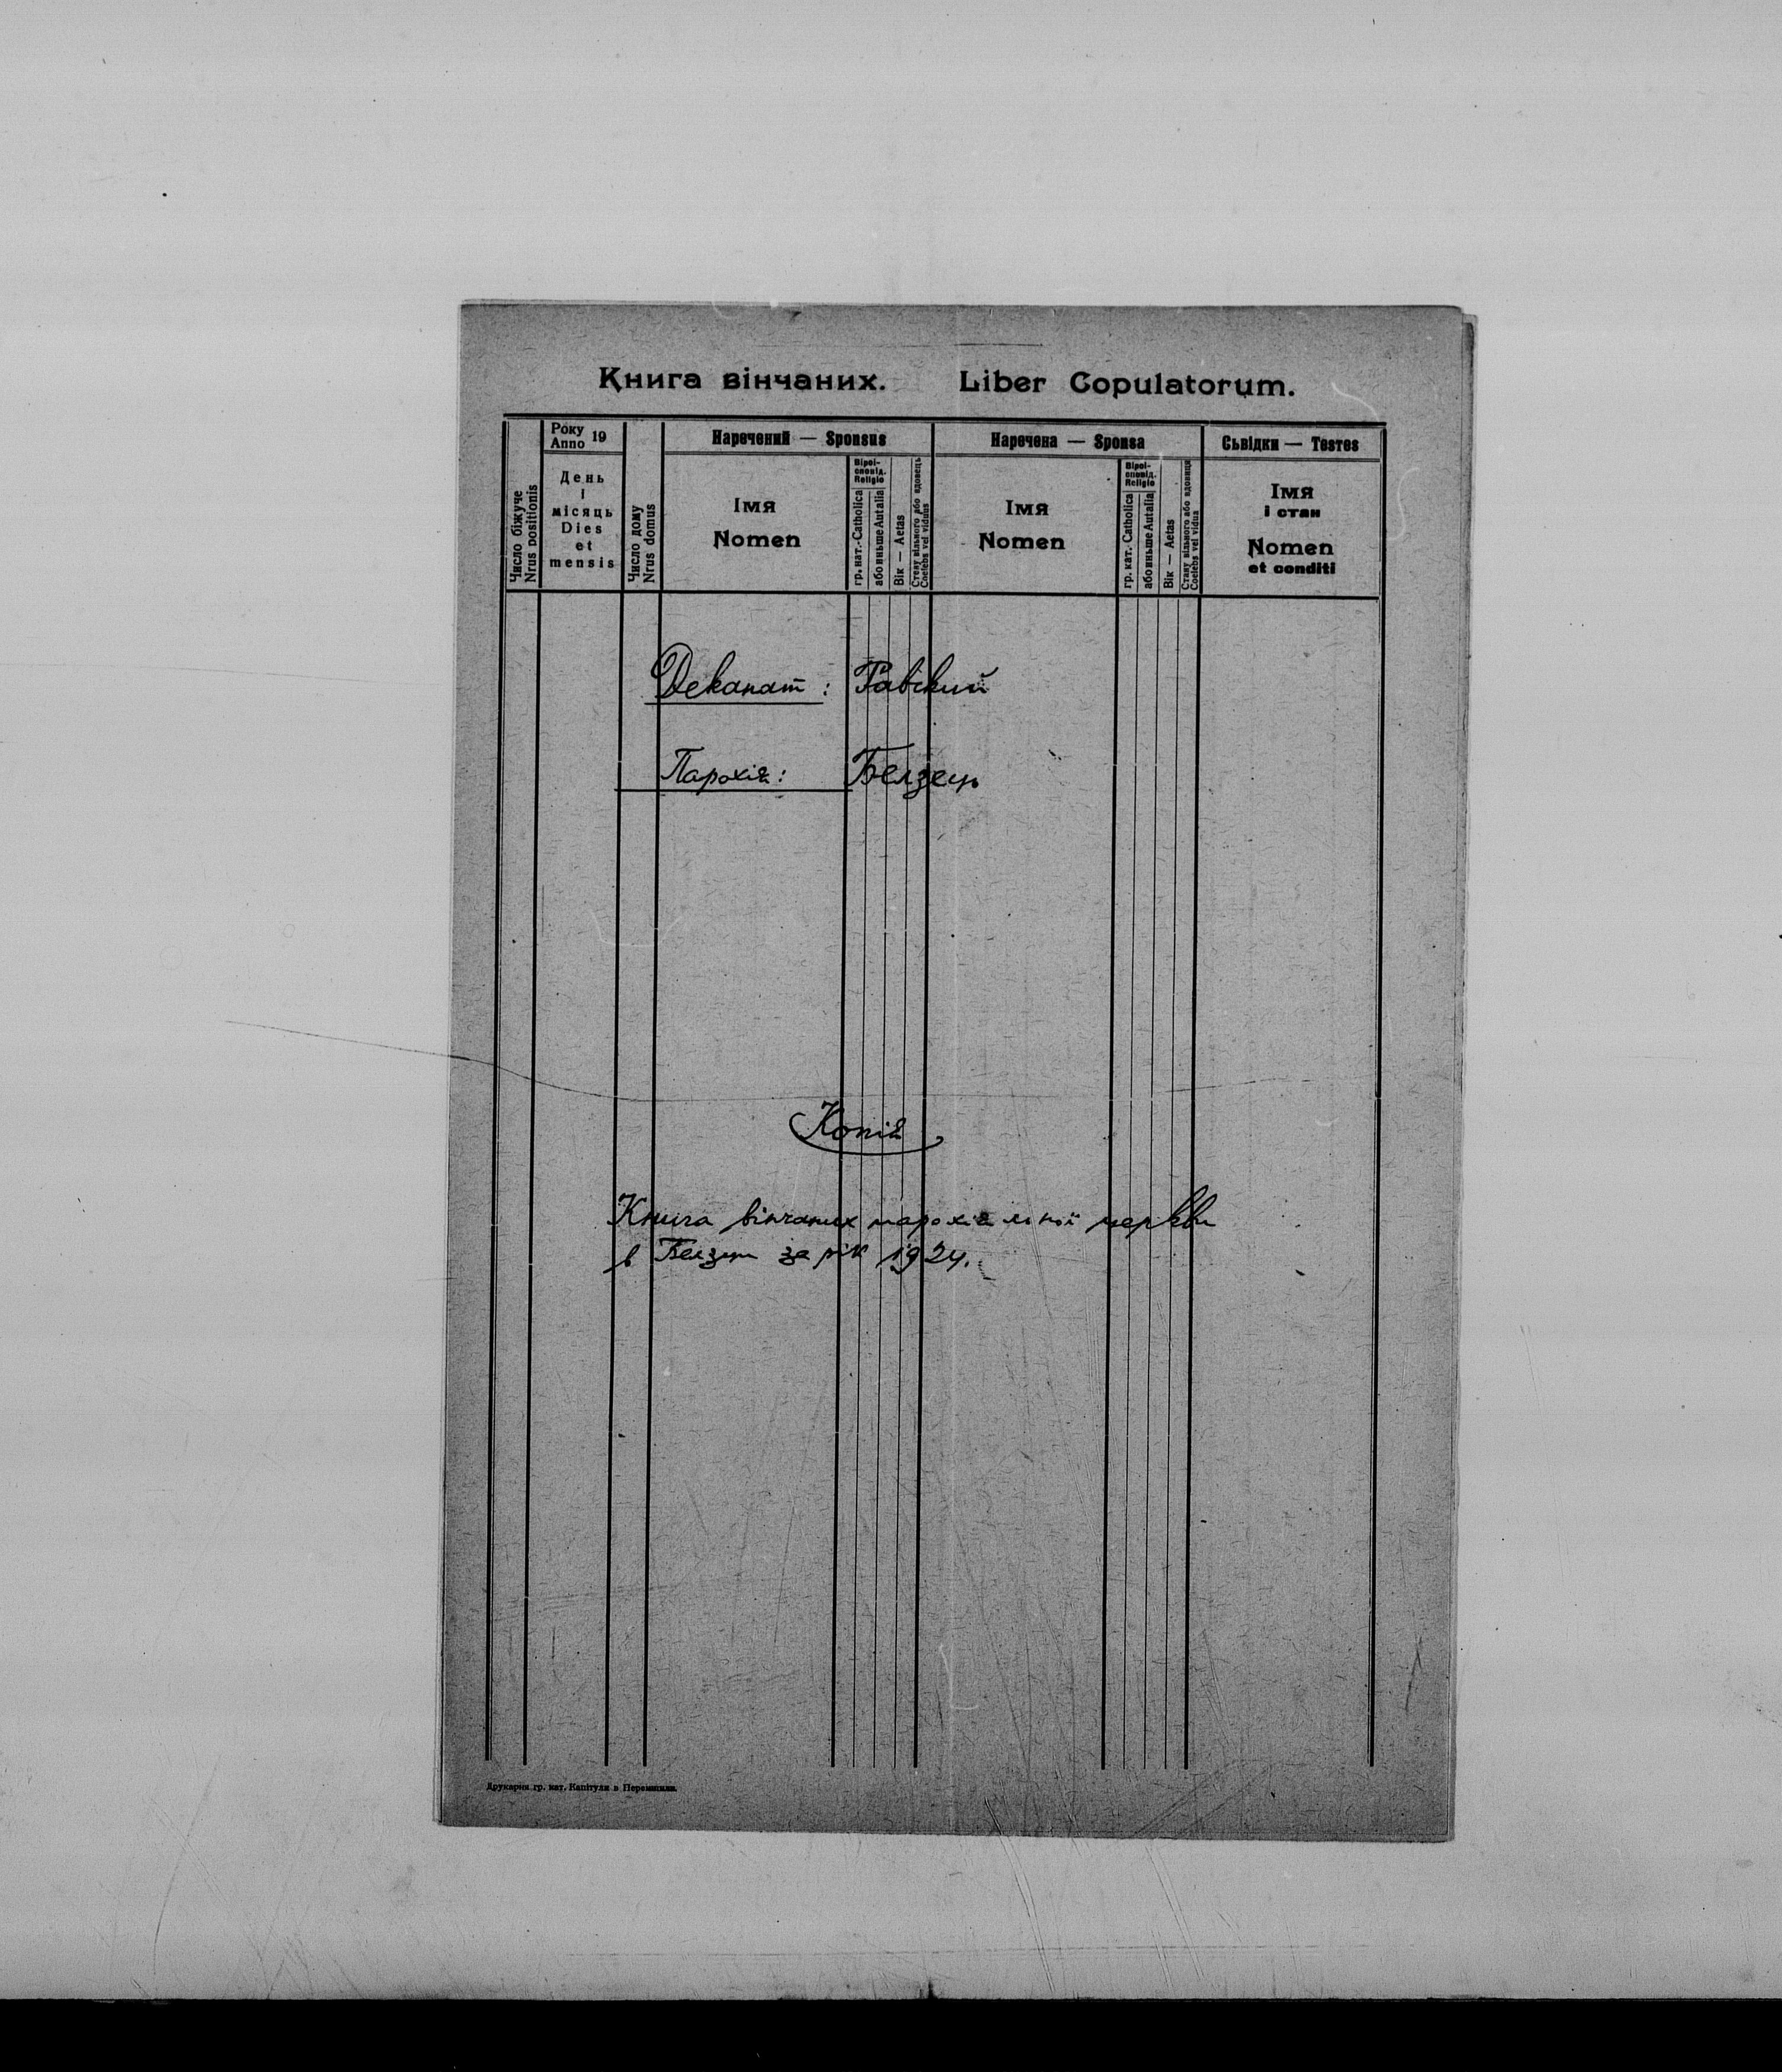 Книга вінчаних. Liber Copulatorum.
Число біжуче
Nrus positionis
Року
Anno 19
День
і
місяць
Dies
et
mensis
Число дому
Nrus domus
Наречений — Sponsus
Імя
Nomen
Віроі-
сповід.
Religio
гр. кат.-Catholica
або иньше Autalia
Вік — Aetas
Стану вільного або вдовець
Coelebs vel viduus
Наречена — Sponsa
Імя
Nomen
Віроі-
сповід.
Religio
гр. кат.-Catholica
або иньше Autalia
Вік — Aetas
Стану вільного або вдовиця
Coelebs vel vidua
Сьвідки — Testes
Імя
і стан
Nomen
et conditi
Деканат: Равский
Парохія: Белзець
Копія
Книга вінчаних парохіяльної церкви
в Белзци за рік 1924.
Друкарня гр. кат. Капітули в Перемишли.